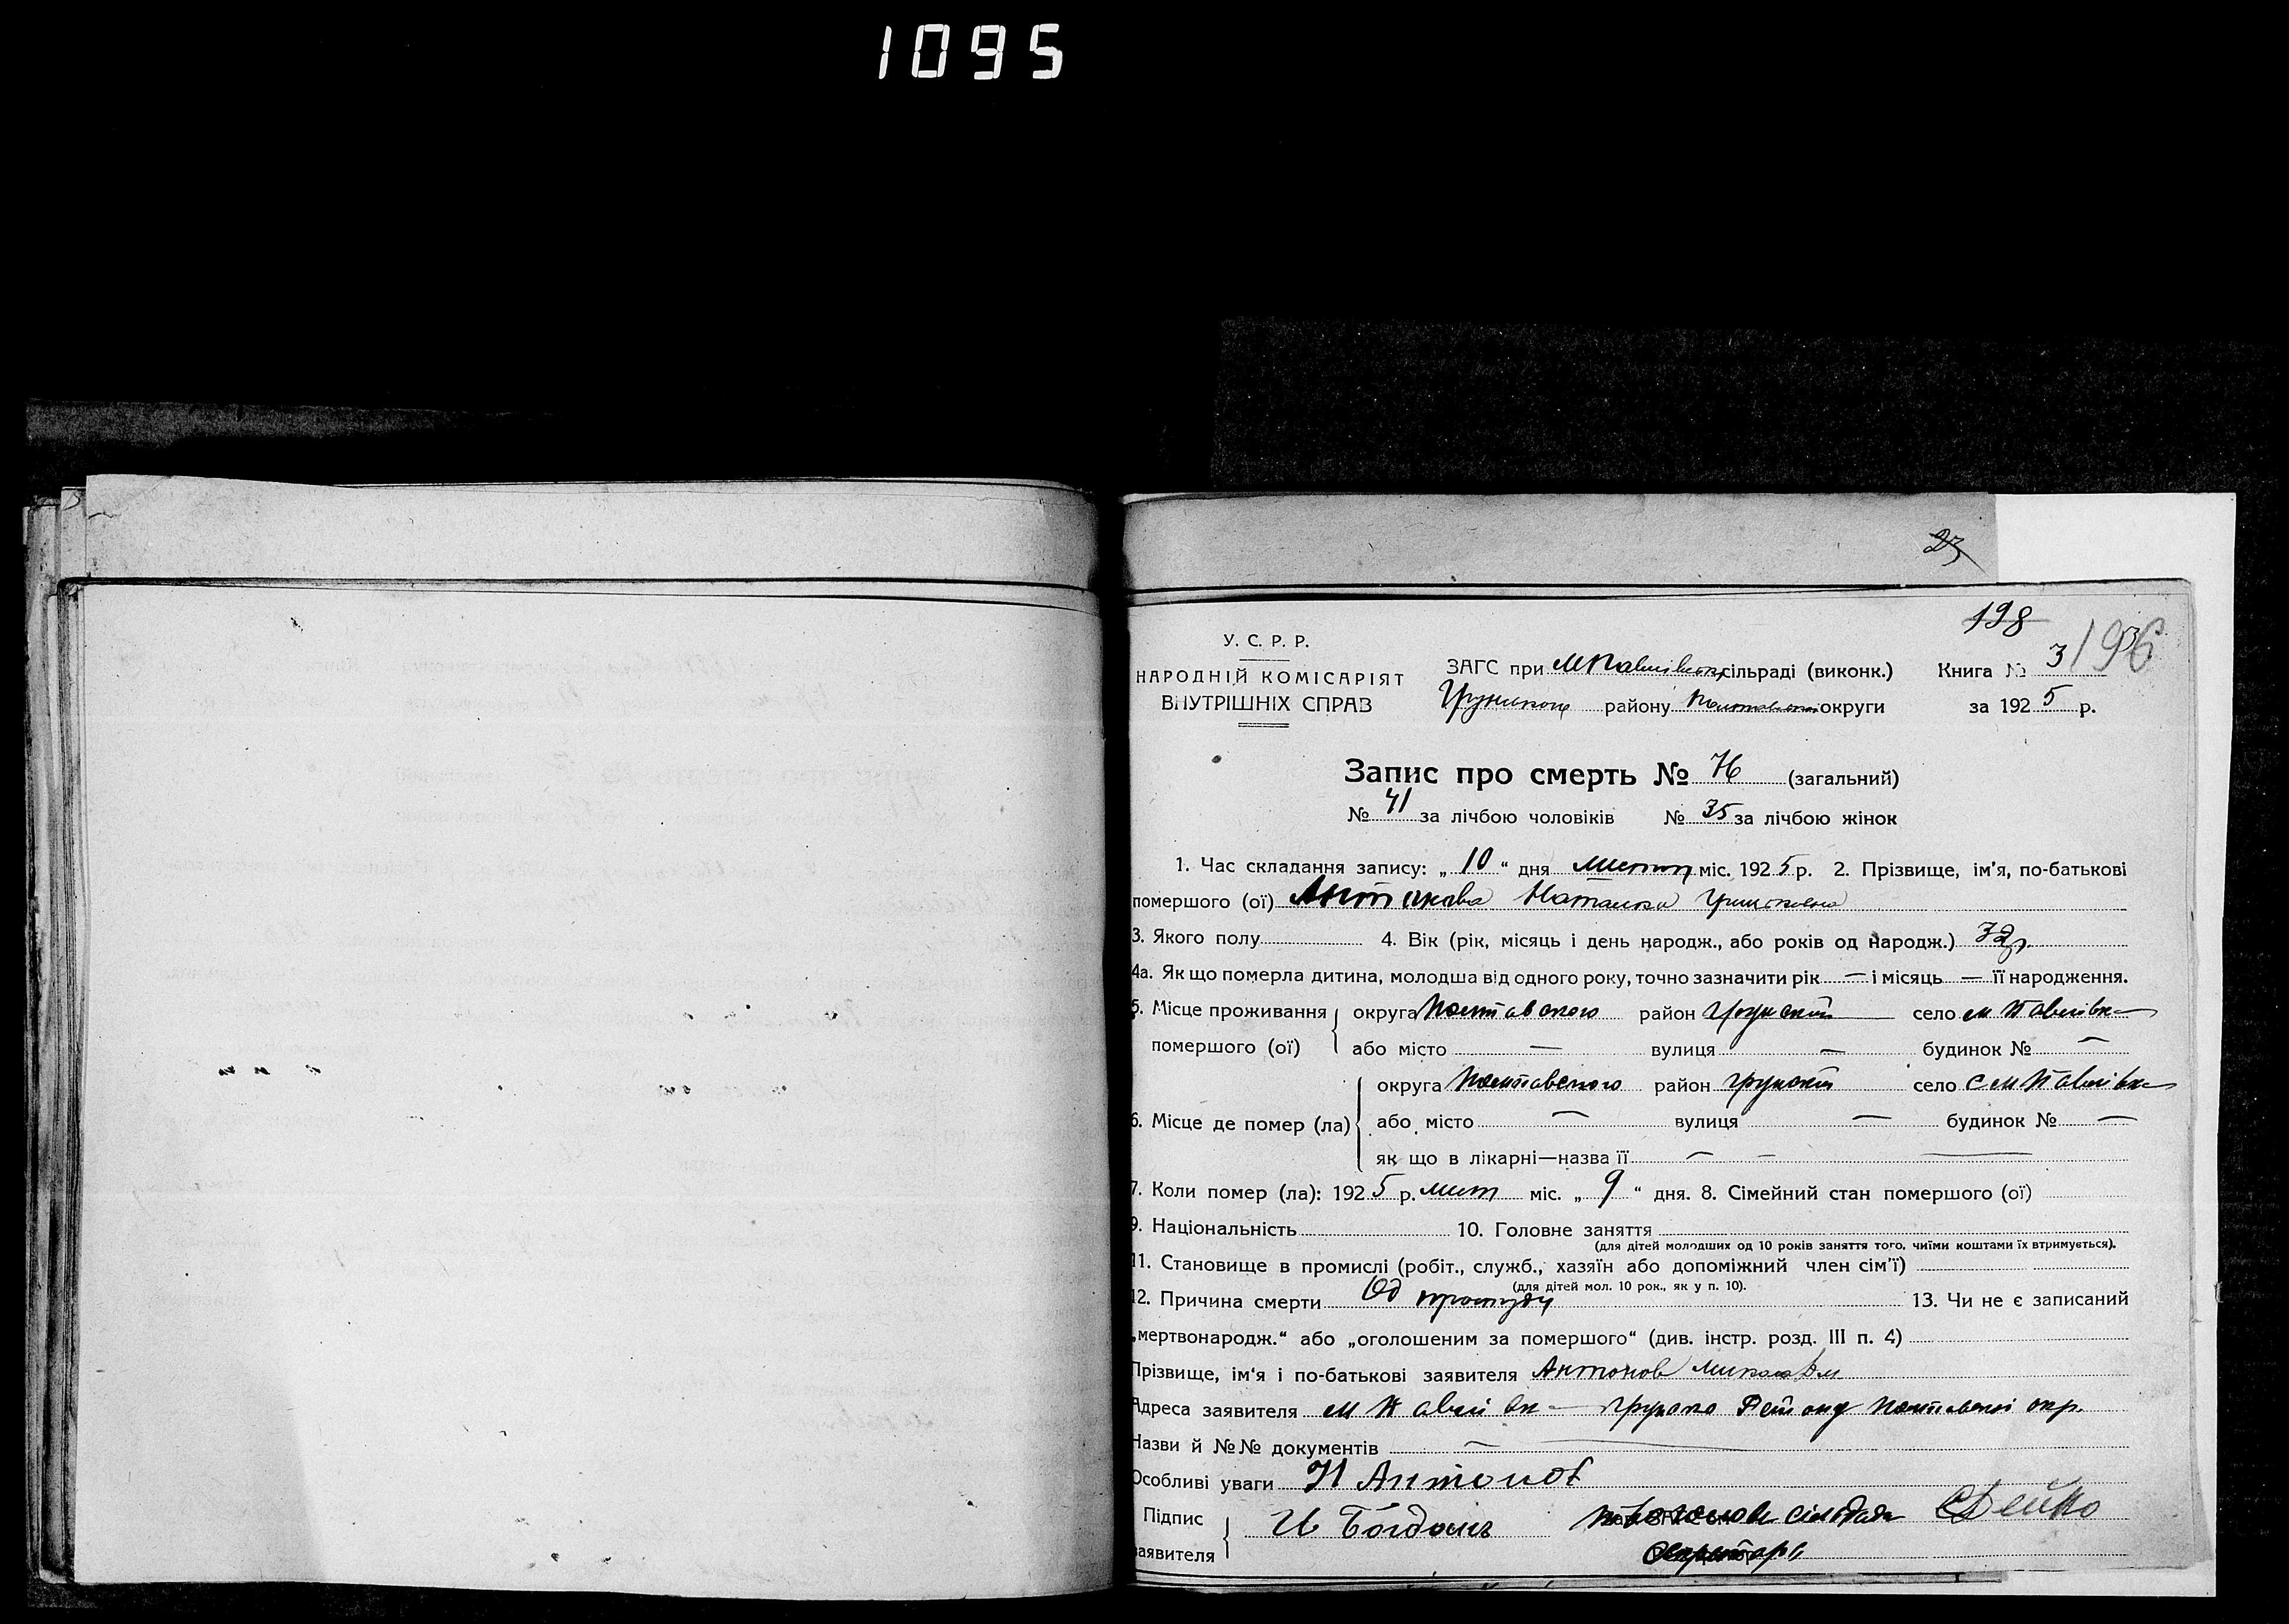 1095
23
198
У. С. Р. Р.
НАРОДНІЙ КОМІСАРІЯТ
ВНУТРІШНІХ СПРАВ
ЗАГС при МПавлівськ сільраді (виконк.)
Книга № 3
196
Грунського району Полтавської округи
за 1925 р.
Запис про смерть № 76 (загальний)
№ 41 за лічбою чоловіків № 35 за лічбою жінок
1. Час складання запису: „10“ дня міс. 1925 р. 2. Прізвище, ім'я, по-батькові
помершого (ої) Антонова Наталка
3. Якого полу 4. Вік (рік, місяць і день народж., або років од народж.) 32 р.
4а. Як що померла дитина, молодша від одного року, точно зазначити рік — і місяць — її народження.
5. Місце проживання помершого (ої) округа Полтавского район Грунский село м Павлівка
або місто — вулиця — будинок № —
6. Місце де помер (ла) округа Полтавского район Грунский село с м Павлівка
або місто — вулиця — будинок № —
як що в лікарні—назва її — —
7. Коли помер (ла): 1925 р. лист міс. „9“ дня. 8. Сімейний стан помершого (ої)
9. Національність 10. Головне заняття
(для дітей молодших од 10 років заняття того, чиїми коштами їх втримується).
11. Становище в промислі (робіт., служб., хазяїн або допоміжний член сім'ї)
(для дітей мол. 10 рок., як у п. 10).
12. Причина смерти Од простуди 13. Чи не є записаний
„мертвонародж.“ або „оголошеним за помершого“ (див. інстр. розд. III п. 4)
Прізвище, ім'я і по-батькові заявителя Антонов
Адреса заявителя м Павлівк Району Полтавської окр.
Назви й №№ документів —
Особливі уваги Н Антонов
Підпис заявителя голови сільради СДейко
Секретарь